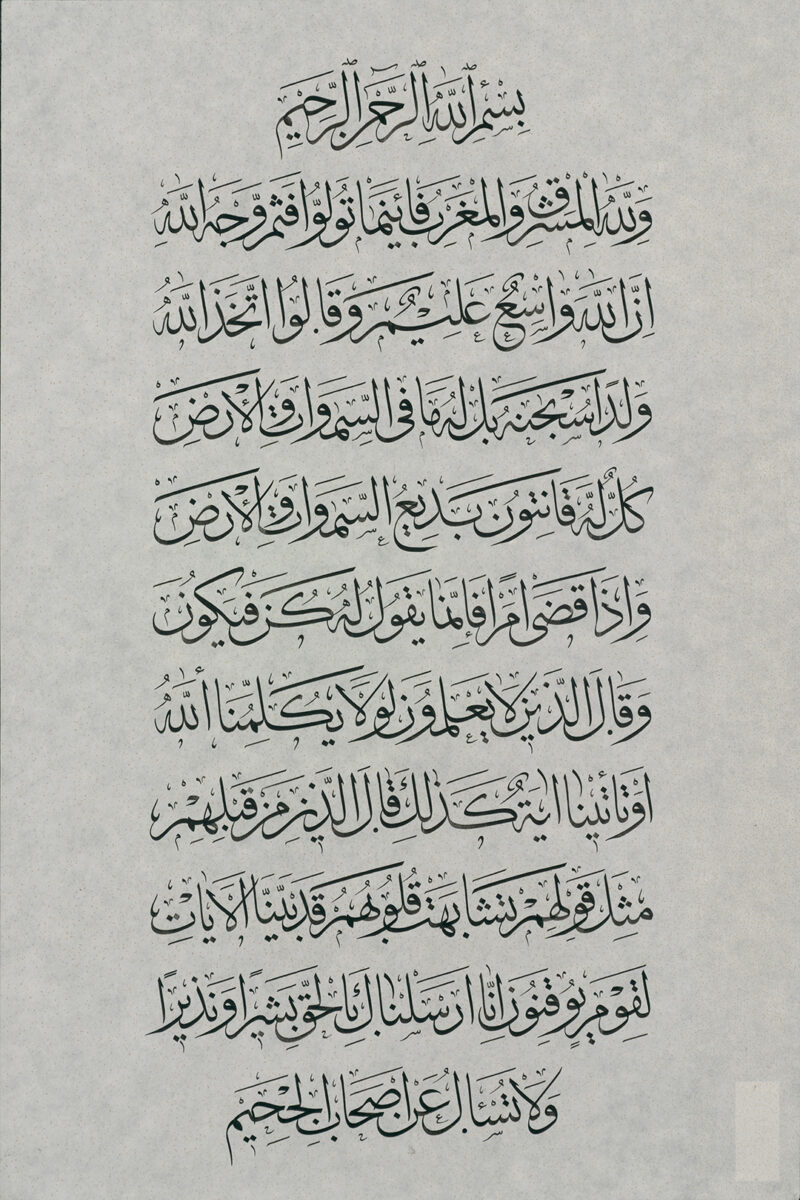 بسم الله الرحمن الرحيم
ولله المشرق والمغرب فأينما تولوا فثم وجه الله
ان الله واسع عليم وقالوا اتخذ الله
ولدا سبحنه بل له ما في السموات والأرض
كل له قانتون بديع السموات والأرض
واذا قضى امرا فإنما يقول له كن فيكون
وقال الذين لا يعلمون لولا يكلمنا الله
او تأتينا اية كذلك قال الذين من قبلهم
مثل قولهم تشابهت قلوبهم قد بينا الآيات
لقوم يوقنون انا ارسلناك بالحق بشيرا ونذيرا
ولا تسأل عن اصحاب الجحيم